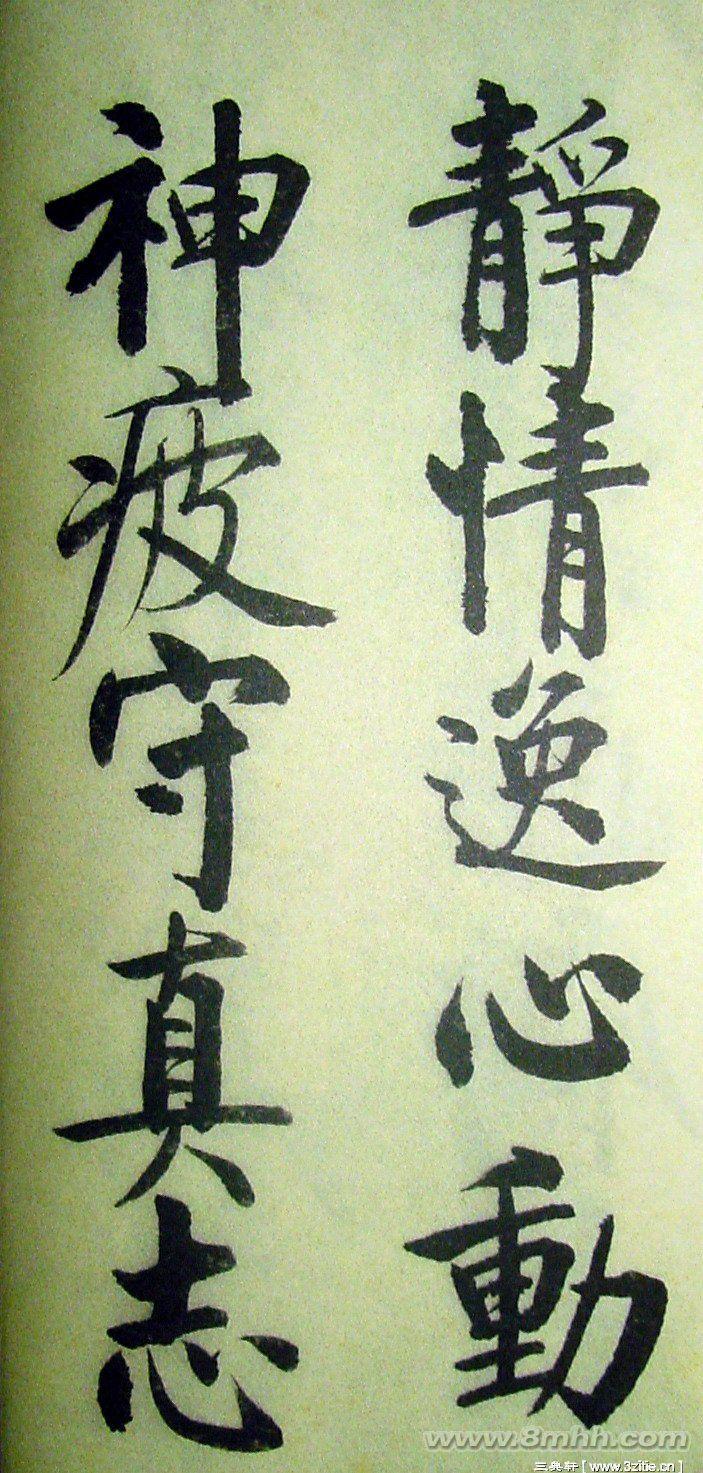 靜情逸心動
神疲守真志
www.8mhh.com
三典轩[www.3zitie.cn]